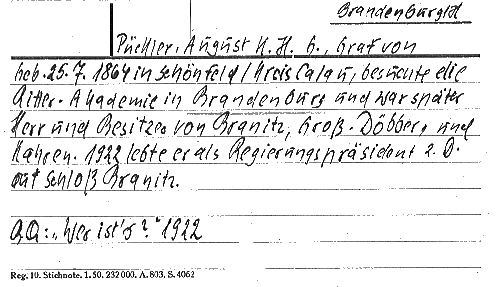 Brandenburg/H
Pückler, August K. H. G., Graf von
Geb. 25. 7. 1864 in Schönfeld / Kreis Calau, besuchte die
Ritter-Akademie in Brandenburg und war später
Herr und Besitzer von Branitz, Groß-Döbbern und
Kahren. 1922 lebte er als Regierungspräsident z. D.
auf Schloß Branitz.
QQ: „Wer ist's?" 1922
Reg. 10. Stichnote. 1. 50. 232 000. A. 803. S. 4062